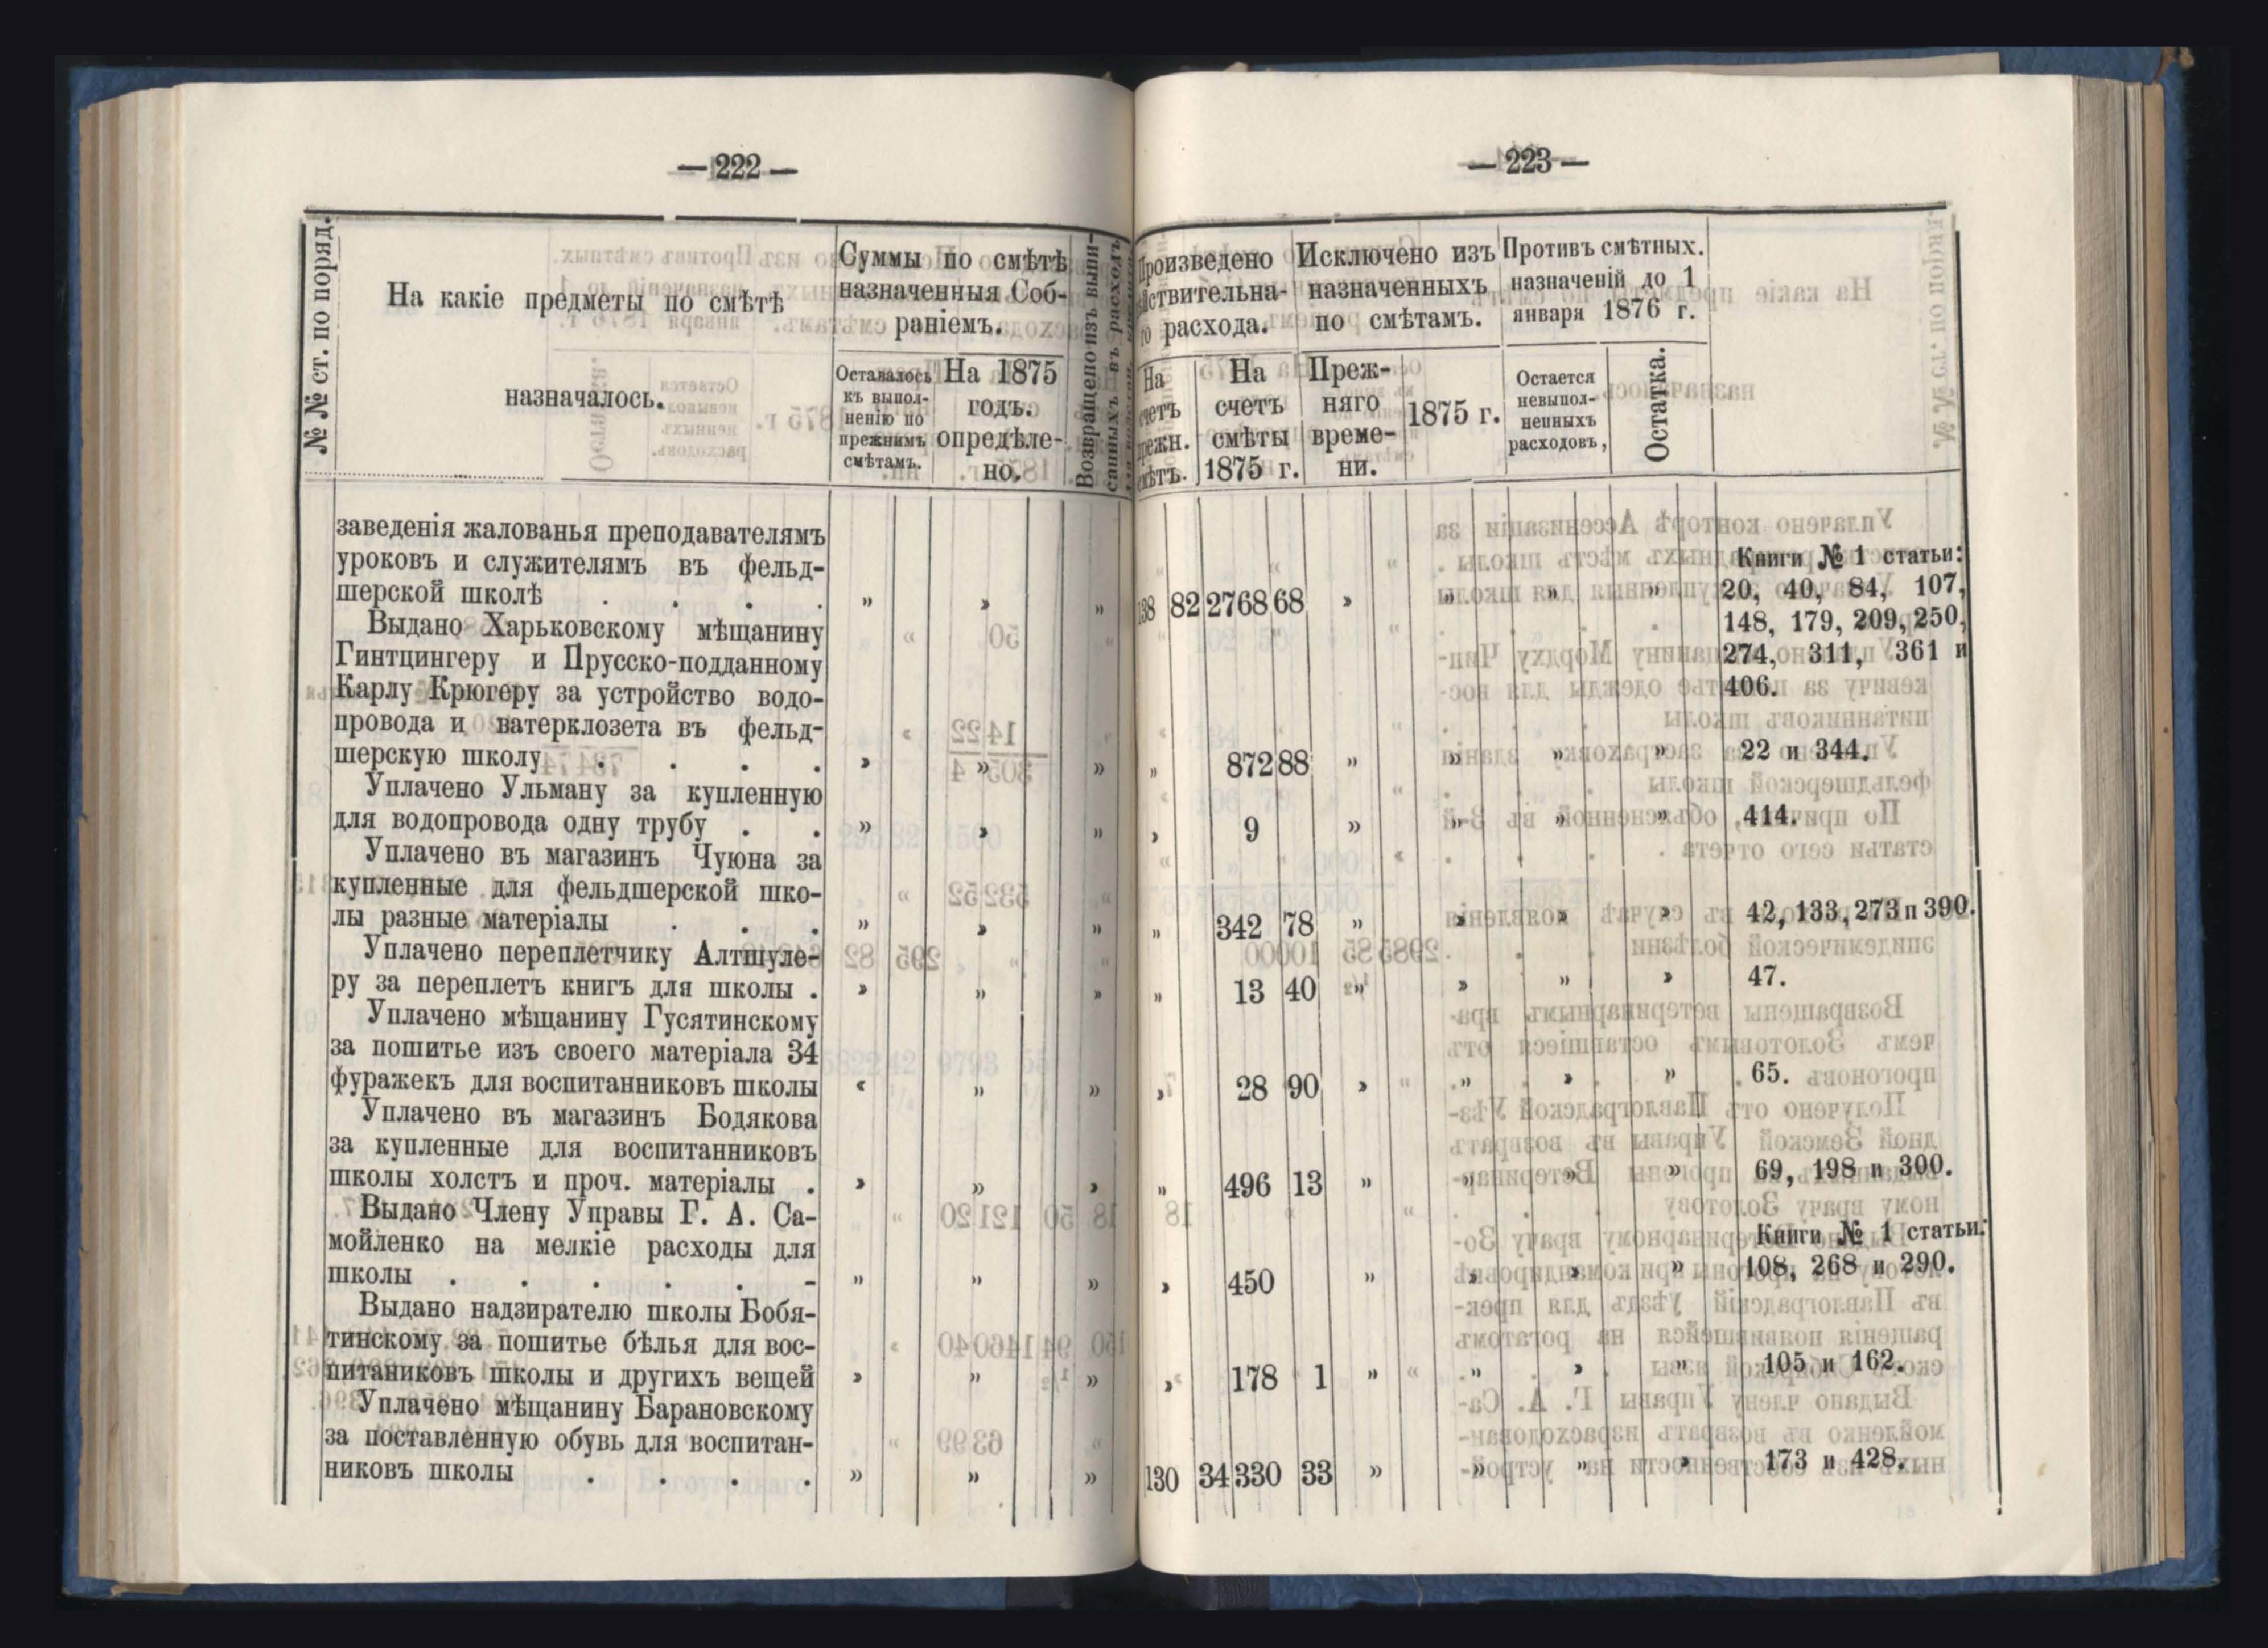 — 222 —
№ № ст. по поряд.
На какіе предметы по смѣтѣ
назначалось.
Суммы по смѣтѣ
назначенныя Соб-
раніемъ.
Оставалось
къ выпол-
ненію по
прежнимъ
смѣтамъ.
На 1875
годъ.
опредѣле-
но.
Возвращено изъ выпи-
санныхъ въ расходъ
заведенія жалованья преподавателямъ
уроковъ и служителямъ въ фельд-
шерской школѣ . . . . „ „ „
Выдано Харьковскому мѣщанину
Гинтцингеру и Прусско-подданному
Карлу Крюгеру за устройство водо-
провода и ватерклозета въ фельд-
шерскую школу . . . . „ „ „
Уплачено Ульману за купленную
для водопровода одну трубу . . „ „ „
Уплачено въ магазинъ Чуюна за
купленные для фельдшерской шко-
лы разные матеріалы . . . „ „ „
Уплачено переплетчику Алтшуле-
ру за переплетъ книгъ для школы . „ „ „
Уплачено мѣщанину Гусятинскому
за пошитье изъ своего матеріала 34
фуражекъ для воспитанниковъ школы „ „ „
Уплачено въ магазинъ Бодякова
за купленные для воспитанниковъ
школы холстъ и проч. матеріалы . „ „ „
Выдано Члену Управы Г. А. Са-
мойленко на мелкіе расходы для
школы . . . . . - „ „ „
Выдано надзирателю школы Бобя-
тинскому за пошитье бѣлья для вос-
питаниковъ школы и другихъ вещей „ „ „
Уплачено мѣщанину Барановскому
за поставленную обувь для воспитан-
никовъ школы . . . . „ „ „
— 223 —
Произведено
йствительна-
го расхода.
На
счетъ
прежн.
смѣтъ.
На
счетъ
смѣты
1875 г.
Исключено изъ
назначенныхъ
по смѣтамъ.
Преж-
няго
време-
ни.
1875 г.
Противъ смѣтныхъ.
назначеній до 1
января 1876 г.
Остается
невыпол-
ненныхъ
расходовъ,
Остатка.
Книги № 1 статьи:
138 82 2768 68 „ „ „ „ 20, 40, 84, 107,
148, 179, 209, 250,
274, 311, 361 и
406.
„ 872 88 „ „ „ „ 22 и 344.
„ 9 „ „ „ „ 414.
„ 342 78 „ „ „ „ 42, 133, 273 п 390.
„ 13 40 „ „ „ „ 47.
„ 28 90 „ „ „ „ 65.
„ 496 13 „ „ „ „ 69, 198 и 300.
Книги № 1 статьи:
„ 450 „ „ „ „ 108, 268 и 290.
„ 178 1 „ „ „ „ 105 и 162.
130 34 330 33 „ „ „ „ 173 и 428.